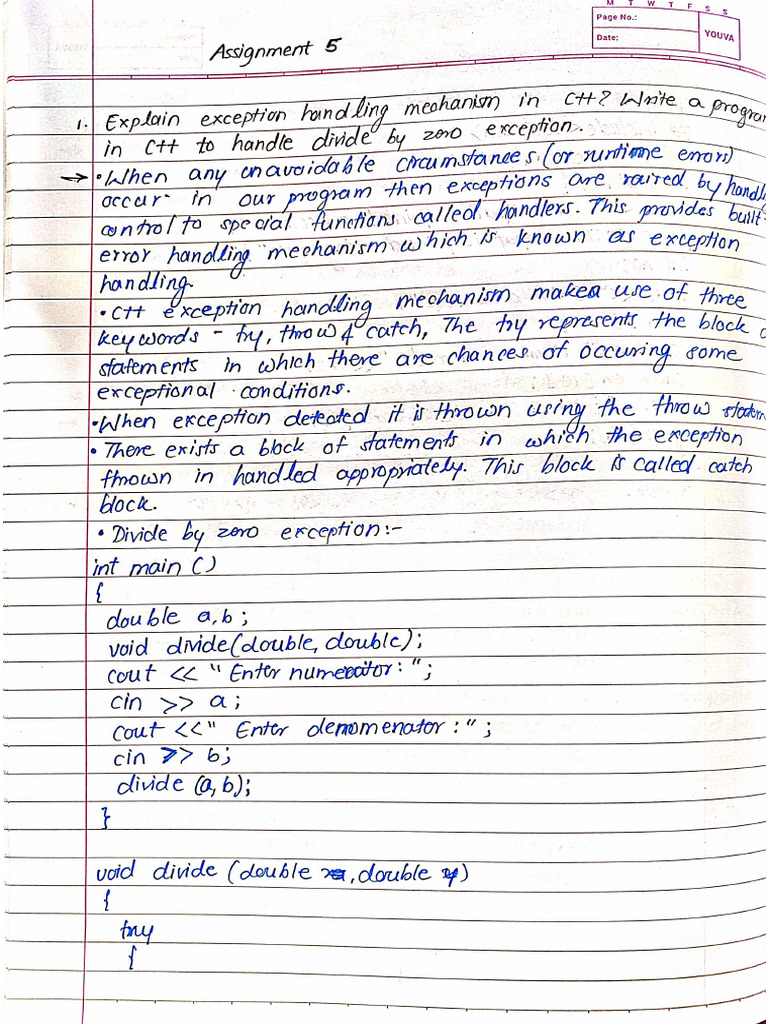 M T W T F S S
Page No.:
Date:
YOUVA
Assignment 5
1. Explain exception handling mechanism in C++? Write a program
in C++ to handle divide by zero exception.
→ • When any unavoidable circumstances (or runtime errors)
occur in our program then exceptions are raired by handli
control to special functions called handlers. This provides built-
error handling mechanism which is known as exception
handling.
• C++ exception handling mechanism makes use of three
keywords - try, throw & catch, The try represents the block o
statements in which there are chances of occuring some
exceptional conditions.
• When exception detected it is thrown using the throw statem
• There exists a block of statements in which the exception
thrown in handled appropriately. This block is called catch
block.
• Divide by zero exception:-
int main ()
{
double a,b;
void divide(double, double);
cout << " Enter numerator: ";
cin >> a;
cout <<" Enter denomenator : " ;
cin >> b;
divide (a,b);
}
void divide (double , double )
{
try
{